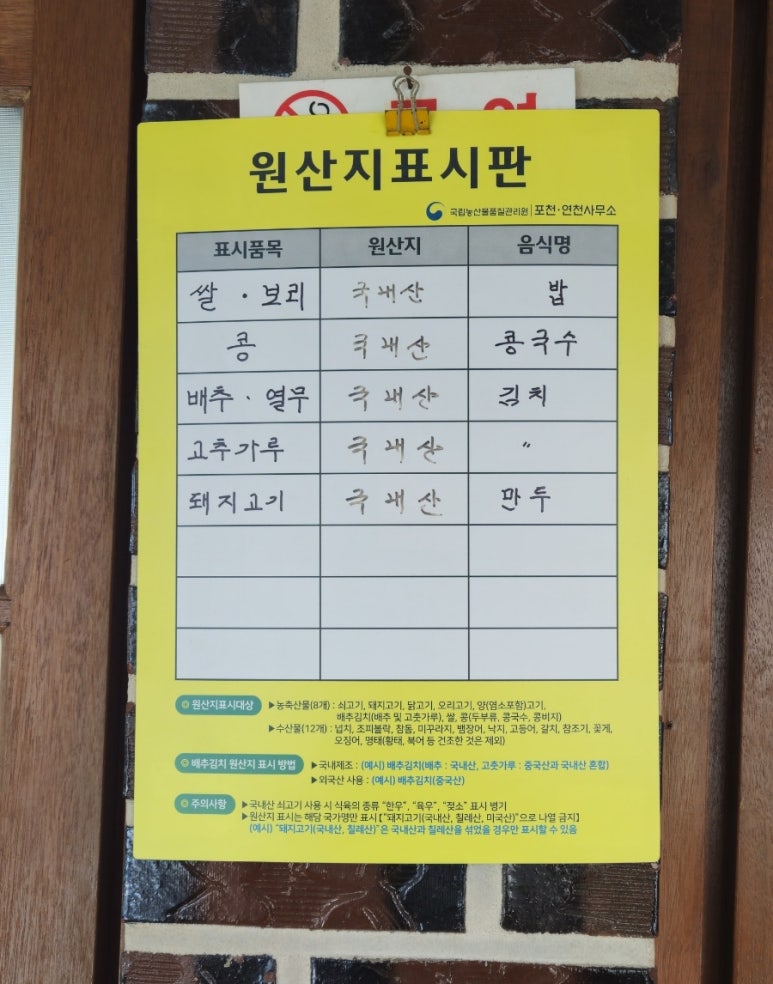 금 연
원산지표시판
국립농산물품질관리원 포천·연천사무소
표시품목 원산지 음식명
쌀 · 보리 국내산 밥
콩 국내산 콩국수
배추 · 열무 국내산 김치
고추가루 국내산 〃
돼지고기 국내산 만두
원산지표시대상 ▶농축산물(8개) : 쇠고기, 돼지고기, 닭고기, 오리고기, 양(염소포함)고기,
배추김치(배추 및 고춧가루), 쌀, 콩(두부류, 콩국수, 콩비지)
▶수산물(12개) : 넙치, 조피볼락, 참돔, 미꾸라지, 뱀장어, 낙지, 고등어, 갈치, 참조기, 꽃게,
오징어, 명태(황태, 북어 등 건조한 것은 제외)
배추김치 원산지 표시 방법 ▶국내제조 : (예시) 배추김치(배추 : 국내산, 고춧가루 : 중국산과 국내산 혼합)
▶외국산 사용 : (예시) 배추김치(중국산)
주의사항 ▶국내산 쇠고기 사용 시 식육의 종류 "한우", "육우", "젖소" 표시 병기
▶원산지 표시는 해당 국가명만 표시【"돼지고기(국내산, 칠레산, 미국산)"으로 나열 금지】
(예시) "돼지고기(국내산, 칠레산)"은 국내산과 칠레산을 섞었을 경우만 표시할 수 있음